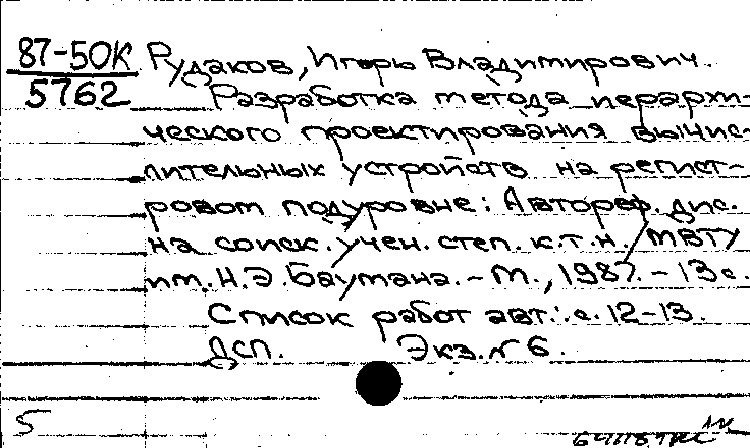 87-5OK Рудаков, Игорь Владимирович.
5762 Разработка метода иерархи-
ческого проектирования вычис-
лительных устройств на регист-
ровом подуровне: Автореф. дис.
на соиск. учен. степ. к.т.н. / МВТУ
им. Н.Э. Баумана. - М., 1987. - 13 с.
Список работ авт.: с. 12-13.
ДСП. Экз. № 6.
5